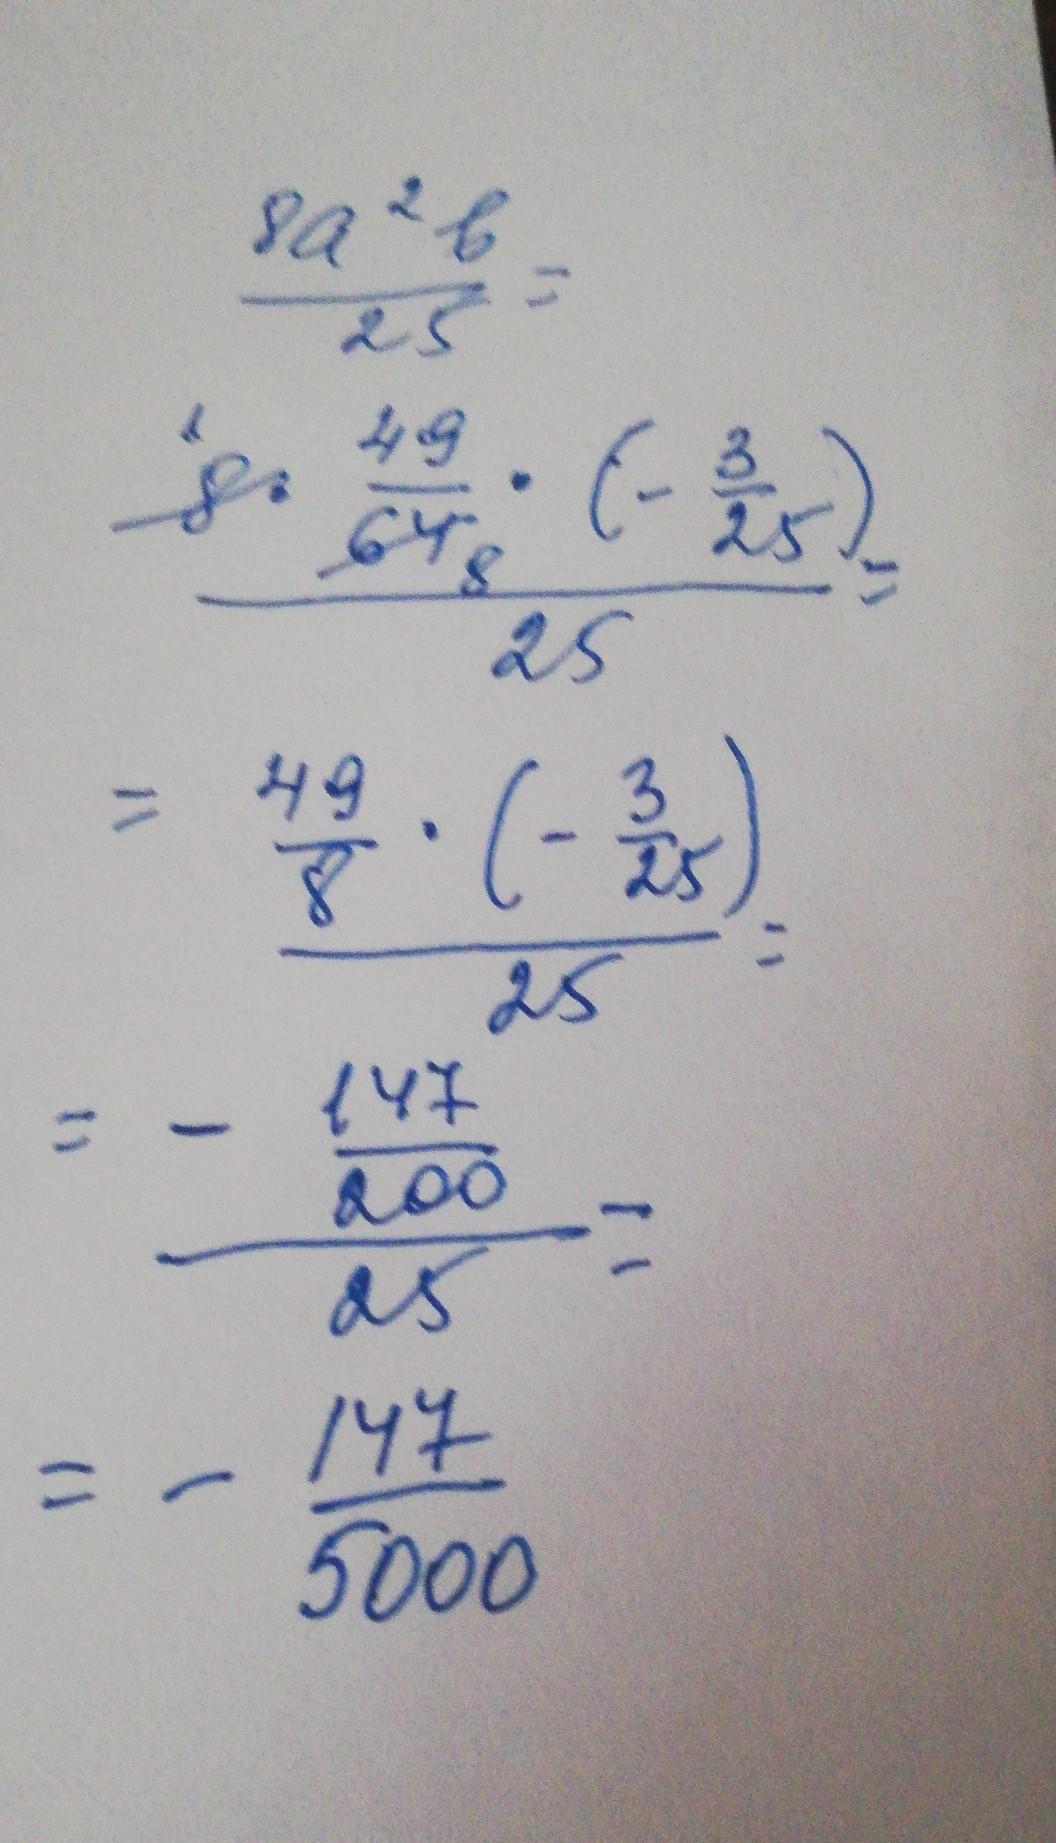 8a²b
25 =
¹8 · 49/64₈ · (- 3/25)
25 =
= 49/8 · (- 3/25)
25 =
= - 147/200
25 =
= - 147
5000